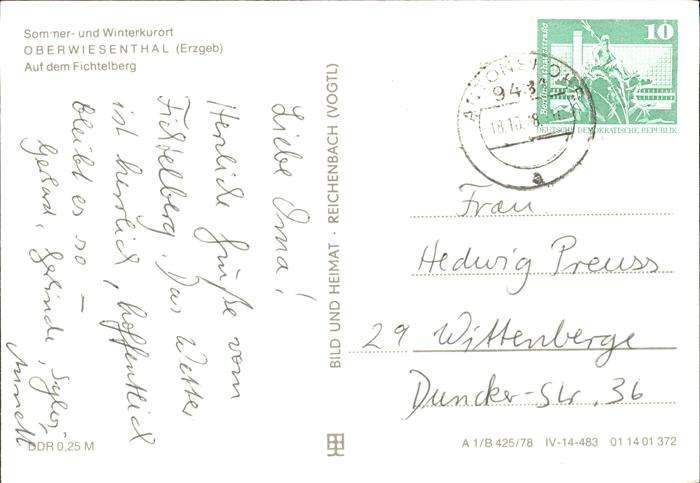 Sommer- und Winterkurort
OBERWIESENTHAL (Erzgeb)
Auf dem Fichtelberg
Liebe Oma!
Herzliche Grüße vom
Fichtelberg. Das Wetter
ist herrlich, hoffentlich
bleibt es so –
Gerhard, Gerlinde,
Annett
DDR 0,25 M
BILD UND HEIMAT · REICHENBACH (VOGTL)
10
DEUTSCHE DEMOKRATISCHE REPUBLIK
943
18.10.
a
Frau
Hedwig Preuss
29 Wittenberge
Duncker-Str. 36
A 1/B 425/78 IV-14-483 01 14 01 372